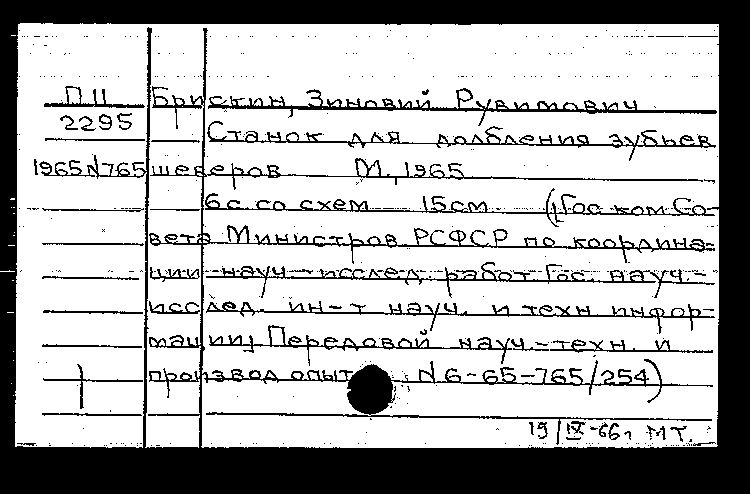 П11 Брискин, Зиновий Рувимович
2295 Станок для долбления зубьев
1965 N765 шеверов М., 1965
6 с. со схем 15 см. (Гос ком Со-
вета Министров РСФСР по координа=
ции науч.-исслед. работ Гос. науч.-
исслед. ин-т науч. и техн информ-
мации] Передовой науч.-техн. и
производ опыт N 6-65-765/254)
19/IX-66г МТ.